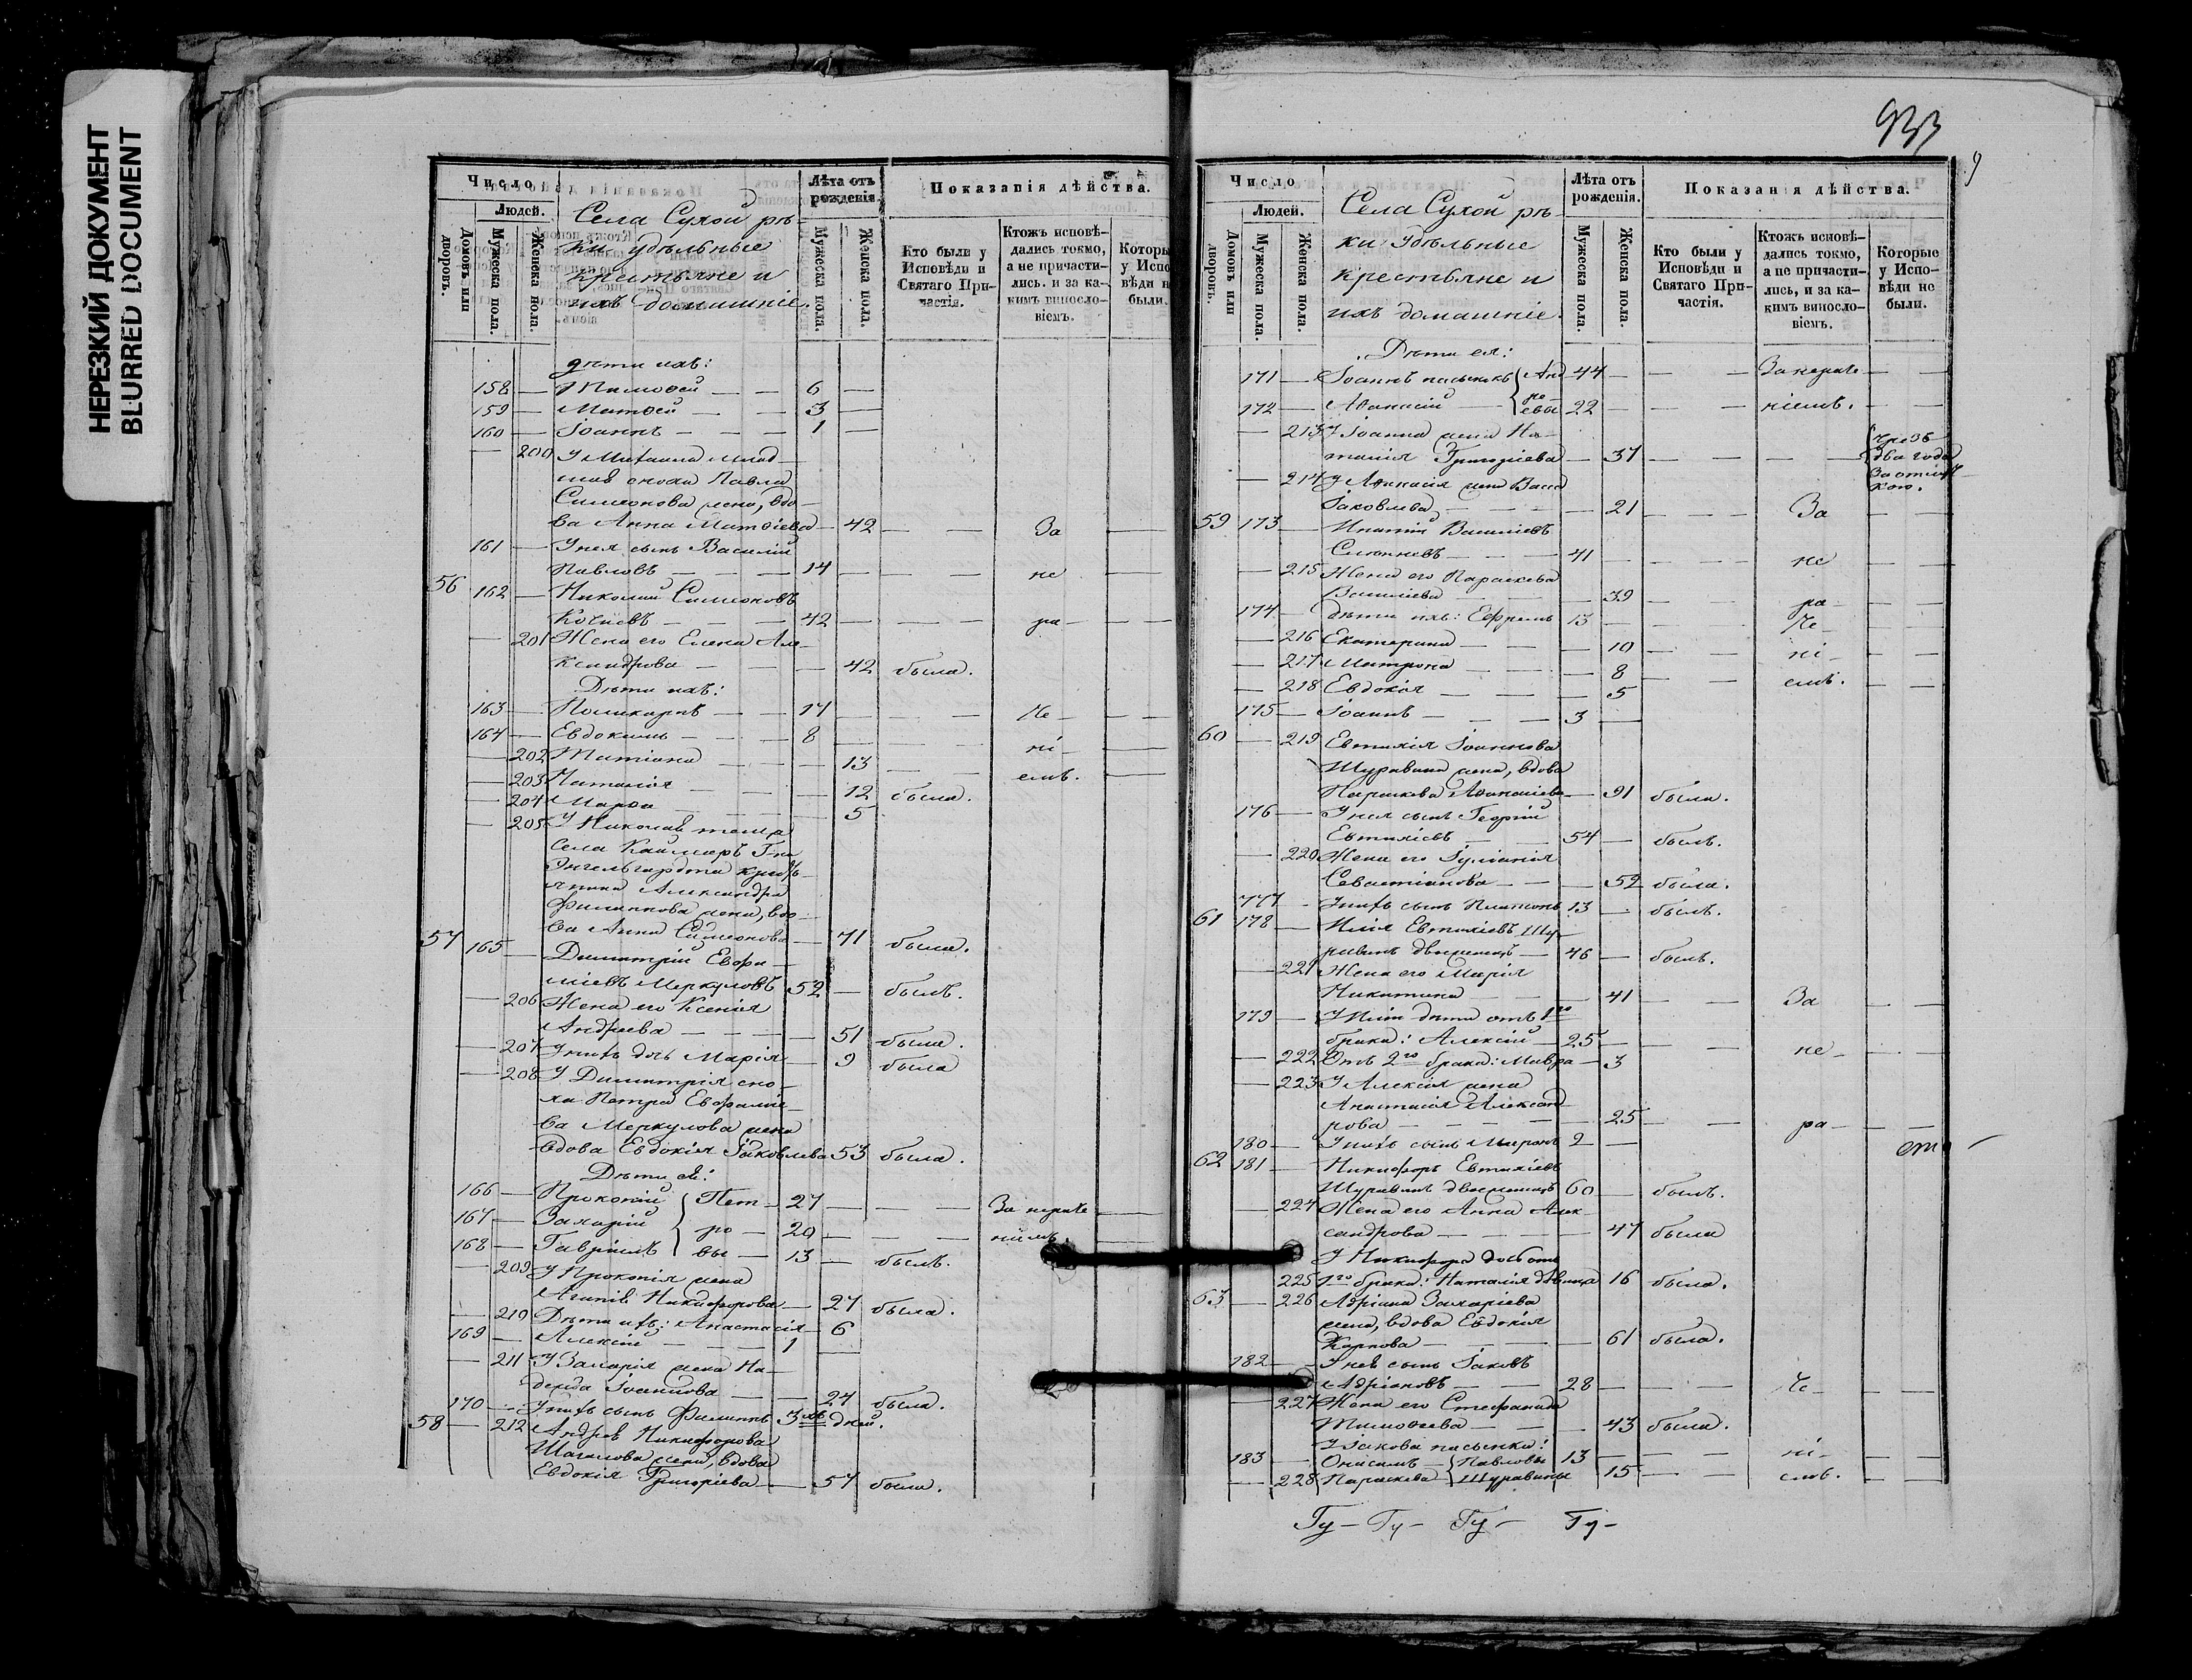 НЕРЕЗКИЙ ДОКУМЕНТ
BLURRED DOCUMENT
Число
Людей.
Домовъ или дворовъ.
Мужеска пола.
Женска пола.
Села Сухой рѣ-
ки удѣльные
крестьяне и
ихъ домашніе.
Лѣта отъ рожденія.
Мужеска пола.
Женска пола.
Показанія дѣйства.
Кто были у Исповѣди и Святаго Причастія.
Ктожъ исповѣдались токмо, а не причастились. и за какимъ винословіемъ.
Которы
у Испо
вѣди н
были.
дѣти ихъ:
158 — Тимоѳей — — 6 —
159 — Матѳей — — 3 —
160 — Іоаннъ — — — 1 —
— 200 У Михаила млад-
шаго сноха Павла
Симеонова жена, вдо-
ва Анна Матѳіева — 42 — — За —
161 — У нея сынъ Василій
Павловъ — — — 14 — — — не —
56 162 — Николай Симеоновъ
— — — 42 — — — ра — —
— 201 Жена его Елена Але-
ксандрова — — — 42 была.
Дѣти ихъ:
163 — Поликарпъ — — 17 — — — че — — —
164 — Евдокимъ — — — 8 — — — ні — —
— 202 Татіана — — — 13 — — емъ. —
— 203 Наталія — — — 12 была.
— 204 Марѳа — — — 5
— 205 У Николая теща
села Каймаръ Г-на
Энгельгардта кресть-
янина Александра
Филиппова жена, вдо-
ва Анна Симеонова — 71 была.
57 165 — Димитрій Евѳи-
міевъ Меркуловъ 52 — былъ.
— 206 Жена его Ксенія
Андреева — — — 51 была.
— 207 У нихъ дочь Марія — 9 была
— 208 У Димитрія сно-
ха Петра Евѳиміе-
ва Меркулова жена
вдова Евдокія Іаковлева 53 была.
Дѣти ея:
166 — Прокопій { Пет — 27 — — — За нераче —
167 — Захарій { ро — 20 — — — ніемъ. —
168 — Гавріилъ { вы — 13 — былъ.
— 209 У Прокопія жена
Агапія Никифорова — 27 была.
— 210 Дѣти ихъ: Анастасія — 6
169 — Алексій — — — 1 —
— 211 У Захарія жена На-
дежда Іоаннова — — 24 была.
170 — У нихъ сынъ Филиппъ 3хъ дней.
58 — 212 Андрея Никифорова
жена, вдова
Евдокія Григоріева — 57 была.
933
9
Число
Людей.
Домовъ или дворовъ.
Мужеска пола.
Женска пола.
Села Сухой рѣ-
ки удѣльные
крестьяне и
ихъ домашніе.
Лѣта отъ рожденія.
Мужеска пола.
Женска пола.
Показанія дѣйства.
Кто были у Исповѣди и Святаго Причастія.
Ктожъ исповѣдались токмо, а не причастились, и за какимъ винословіемъ.
Которые у Исповѣди не были.
Дѣти ея:
171 — Іоаннъ пасынокъ { Анд 44 — — — За нераче — —
172 — Аѳанасій — { ре-евы 22 — — — ніемъ. — —
— 213 У Іоанна жена На-
талія Григоріева — 37 — — — { чрезъ два года за отлучкою.
— 214 У Аѳанасія жена Васса
Іаковлева — — — — 21 — За — —
59 173 — Игнатій Василіевъ
— — — 41 — — — не — —
— 215 Жена его Параскева
Василіева — — — 39 — — ра — — —
174 — дѣти ихъ: Ефремъ 13 — — — че — — —
— 216 Екатерина — — — 10 — — ні — — —
— 217 Матрона — — — 8 — — емъ. — —
— 218 Евдокія — — — 5
175 — Іоаннъ — — — 3 —
60 — 219 Евтихія Іоаннова
Шуравина жена, вдова
Параскева Аѳанасіева — 91 была.
176 — У нея сынъ Георгій
Евтихіевъ — — 54 — былъ.
— 220 Жена его Іуліанія
Севастіанова — — — 52 была.
177 — У нихъ сынъ Платонъ 13 — былъ.
61 178 — Илія Евтихіевъ Шу-
равинъ двоеженецъ — 46 — былъ.
— 221 Жена его Марія
Никитина — — — 41 — — За — —
179 — У Иліи дѣти отъ 1го
брака: Алексій — 25 — — — не — — —
— 222 Отъ 2го брака: Мавра — 3
— 223 У Алексія жена
Анастасія Александ-
рова — — — — 25 — — ра — — —
180 — У нихъ сынъ Миронъ 2 —
62 181 — Никифоръ Евтихіевъ
Шуравинъ двоеженецъ 60 — былъ.
— 224 Жена его Анна Алек-
сандрова — — — — 47 была
У Никифора дочь отъ
225 1го брака: Наталія дѣвица 16 была.
63 — 226 Адріана Захаріева
жена, вдова Евдокія
Карпова — — — — 61 была.
182 — У нея сынъ Іаковъ
Адріановъ — — — 28 — — — че — — —
— 227 Жена его Стефанида
Тимоѳеева — — — 43 была.
У Іакова пасынки:
183 — Онисимъ — { Павловы 13 — — — ні — — —
— 228 Параскева — { Шуравины 15 — — емъ. — —
Гу — Гу — Гу — Гу —